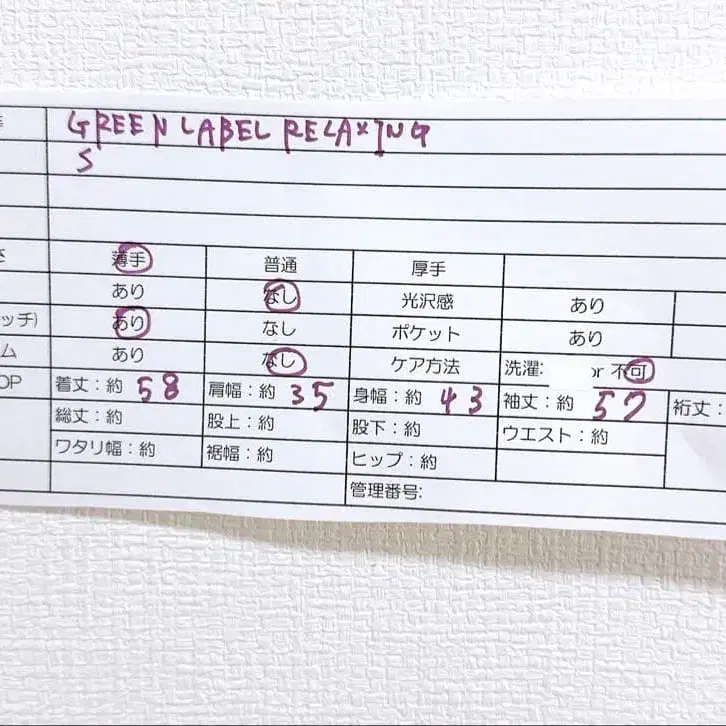 GREEN LABEL RELAXING
S
さ 薄手 普通 厚手
あり なし 光沢感 あり
ッチ) あり なし ポケット あり
ム あり なし ケア方法 洗濯: or 不可
OP 着丈:約 58 肩幅:約 35 身幅:約 43 袖丈:約 57 裄丈:
総丈:約 股上:約 股下:約 ウエスト:約
ワタリ幅:約 裾幅:約 ヒップ:約
管理番号: